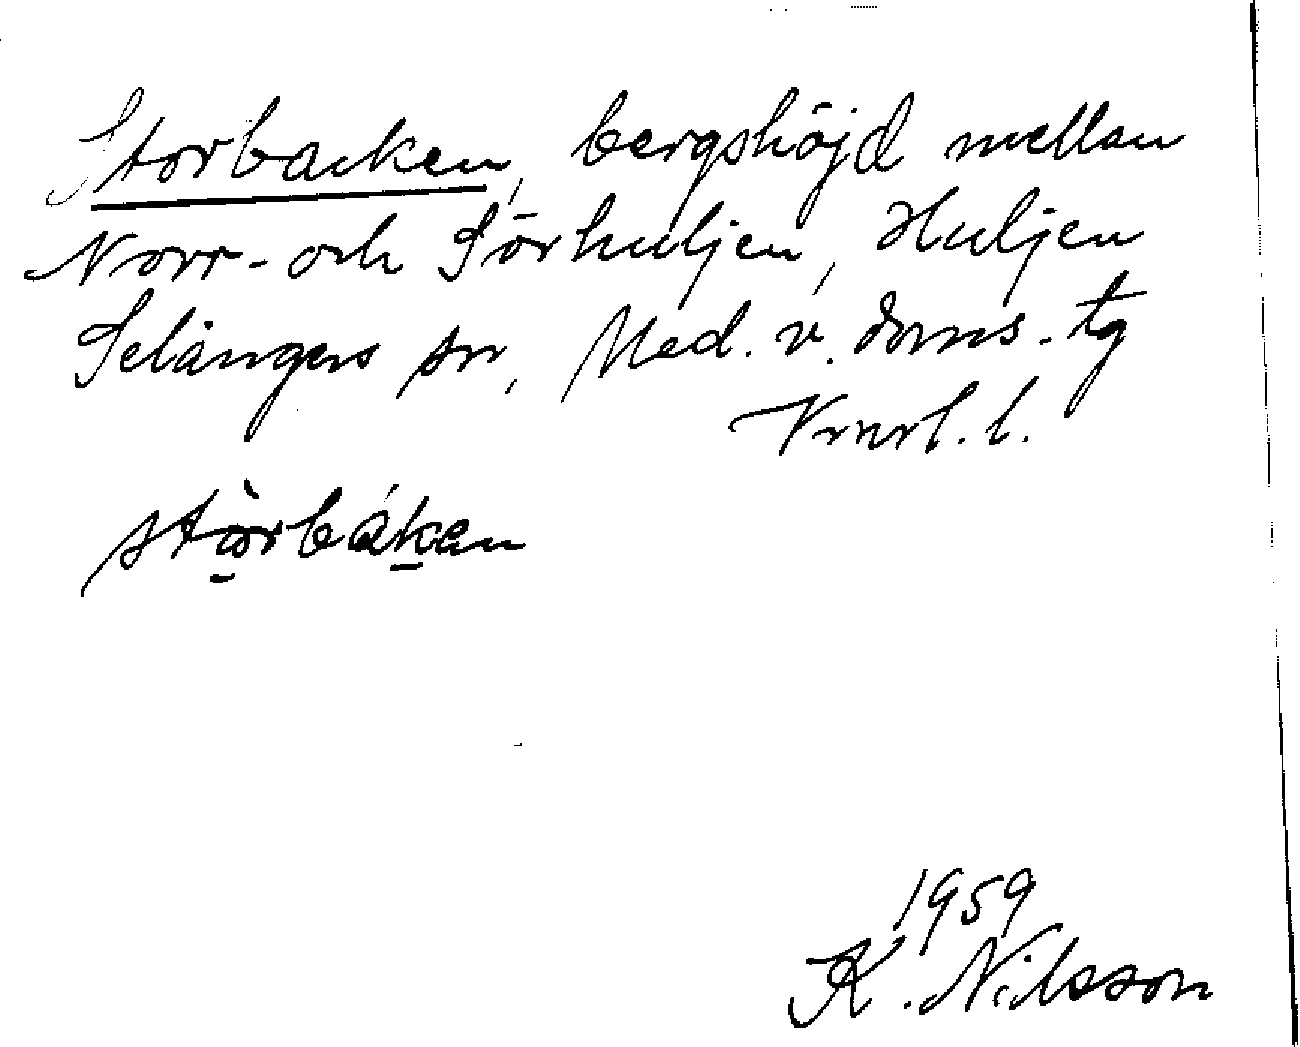 Storbacken, bergshöjd mellan
Norr- och Sörhuljen, Huljen
Selångers sn, Med. v. doms. tg
Vrnrl. l.
stòrbáken
1959
K. Nilsson